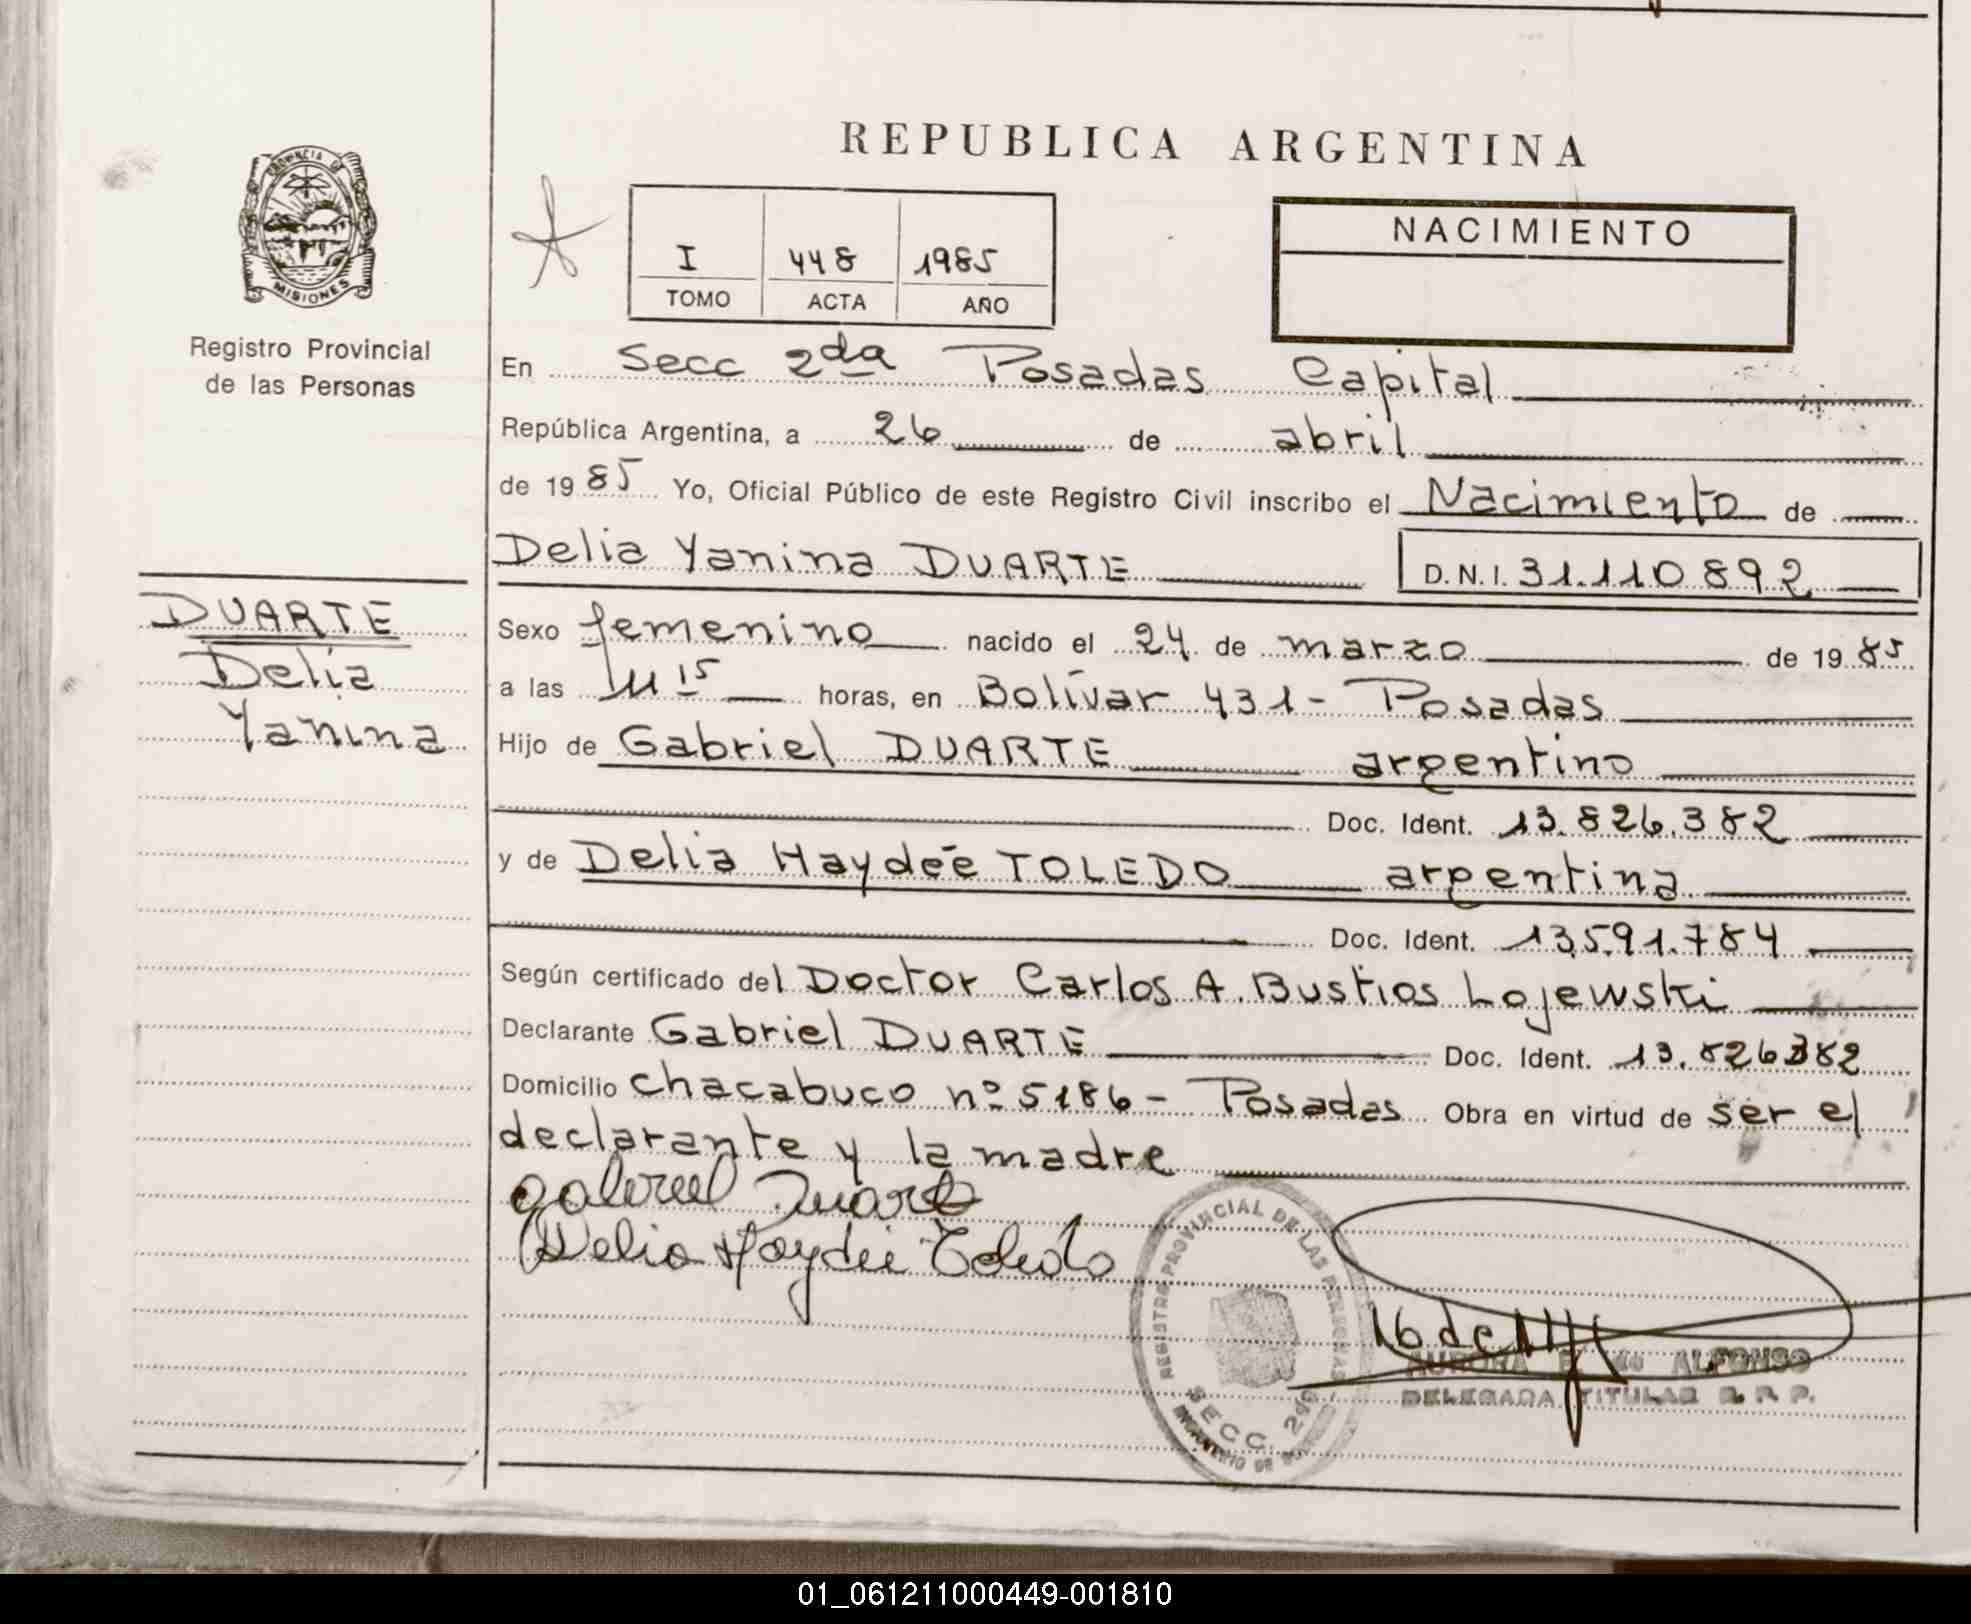 REPUBLICA ARGENTINA
PROVINCIA DE
MISIONES
Registro Provincial
de las Personas
I 448 1985
TOMO ACTA AÑO
NACIMIENTO
En Secc 2da Posadas Capital
República Argentina, a 26 de abril
de 1985 Yo, Oficial Público de este Registro Civil inscribo el Nacimiento de
Delia Yanina DUARTE D.N.I. 31.110892
DUARTE
Delia
Yanina
Sexo femenino nacido el 24 de marzo de 1985
a las 15 horas, en Bolívar 431 - Posadas
Hijo de Gabriel DUARTE argentino
Doc. Ident. 13.826.382
y de Delia Haydée TOLEDO argentina
Doc. Ident. 13.591.784
Según certificado del Doctor Carlos A. Bustios Lojewski
Declarante Gabriel DUARTE Doc. Ident. 13.826382
Domicilio Chacabuco nº 5186 - Posadas Obra en virtud de ser el
declarante y la madre
Gabriel Duarte
Delia Haydée Toledo
REGISTRO PROVINCIAL DE LAS PERSONAS
SECC 2da
AURORA de ALFONSO
DELEGADA TITULAR R. P. P.
01_061211000449-001810